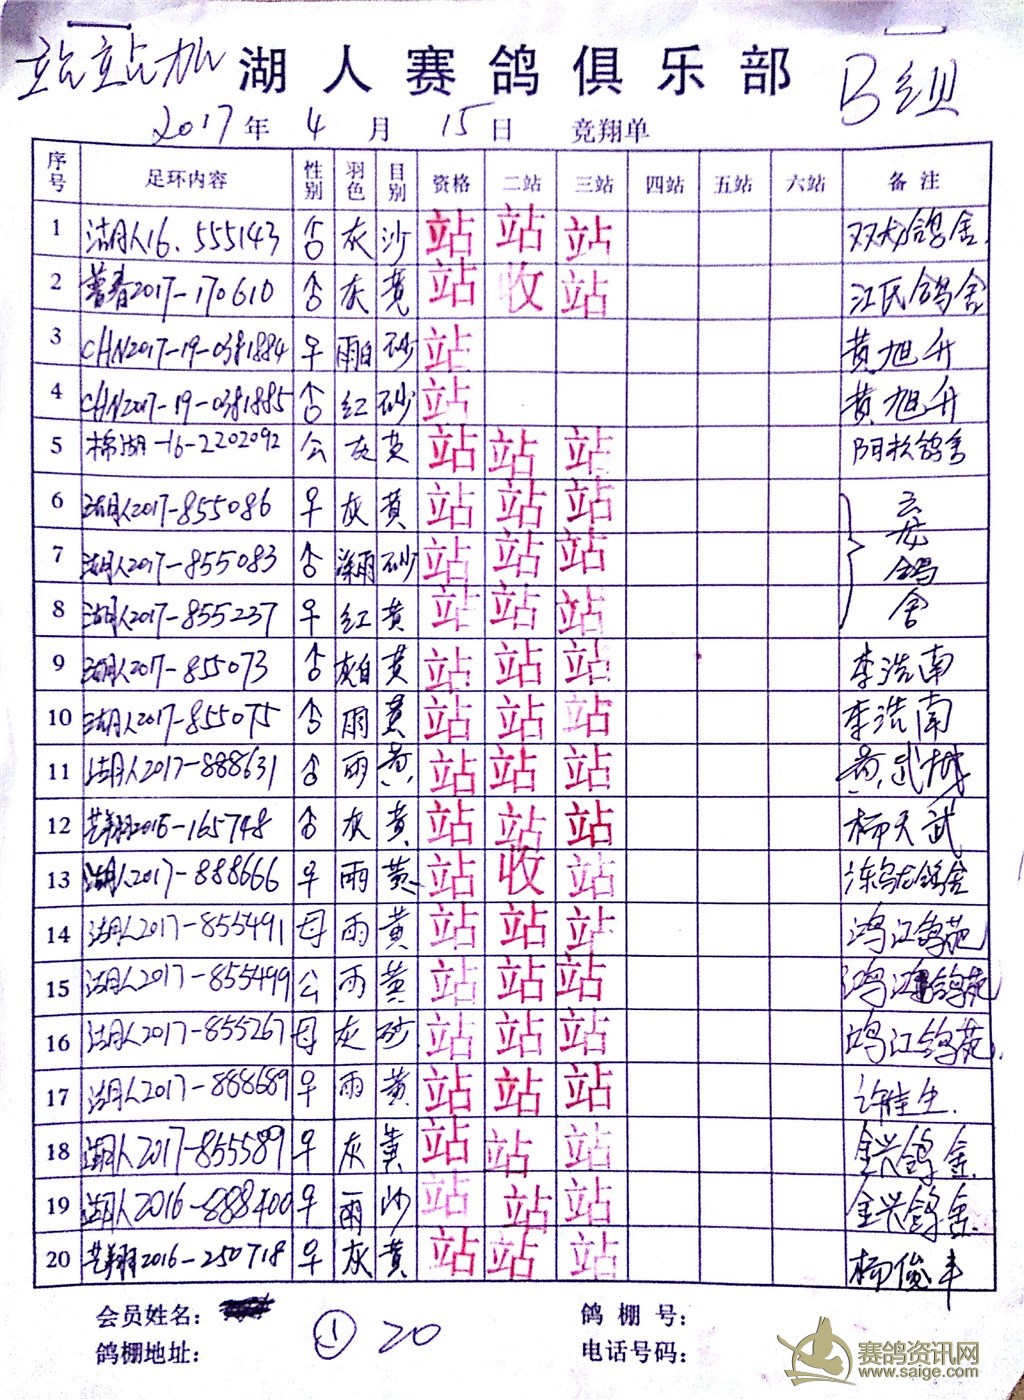 站站加 湖人赛鸽俱乐部 B组
2017年 4月 15日 竞翔单
序号 足环内容 性别 羽色 目别 资格 二站 三站 四站 五站 六站 备注
1 湖人16.555143 灰 沙 站 站 站 双龙鸽舍
2 普春2017-170610 灰 黄 站 收 站 江氏鸽舍
3 CHN2017-19-0381884 早 雨白 砂 站 黄旭升
4 CHN2017-19-0381885 红 砂 站 黄旭升
5 棉湖-16-2202092 公 灰 黄 站 站 站 阿松鸽舍
6 湖人2017-855086 早 灰 黄 站 站 站 云安鸽舍
7 湖人2017-855083 深雨 砂 站 站 站
8 湖人2017-855237 早 红 黄 站 站 站
9 湖人2017-855073 灰白 黄 站 站 站 李浩南
10 湖人2017-855075 雨 黄 站 站 站 李浩南
11 湖人2017-888631 雨 黄 站 站 站 黄武城
12 艺翔2016-165748 灰 黄 站 站 站 杨天武
13 湖人2017-888666 早 雨 黄 站 收 站 乌龙鸽舍
14 湖人2017-855491 母 雨 黄 站 站 站 鸿江鸽苑
15 湖人2017-855499 公 雨 黄 站 站 站 鸿江鸽苑
16 湖人2017-855267 母 灰 砂 站 站 站 鸿江鸽苑
17 湖人2017-888689 早 雨 黄 站 站 站 许佳生
18 湖人2017-855589 早 灰 黄 站 站 站 金兴鸽舍
19 湖人2016-888400 早 雨 沙 站 站 站 金兴鸽舍
20 艺翔2016-250718 早 灰 黄 站 站 站 杨俊丰
会员姓名： 鸽棚号：
① 20
鸽棚地址： 电话号码：
赛鸽资讯网
www.saige.com